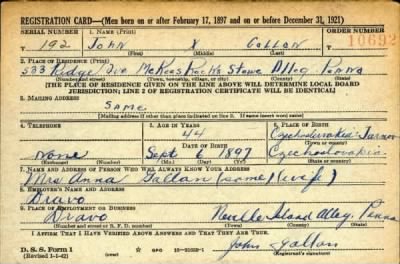 REGISTRATION CARD—(Men born on or after February 17, 1897 and on or before December 31, 1921)
SERIAL NUMBER 1. NAME (Print) ORDER NUMBER
T 192 John X Gallan 10692
(First) (Middle) (Last)
2. PLACE OF RESIDENCE (Print)
533 Ridge Ave McKees Rocks Stowe Alleg Penna
(Number and street) (Town, township, village, or city) (County) (State)
[THE PLACE OF RESIDENCE GIVEN ON THE LINE ABOVE WILL DETERMINE LOCAL BOARD
JURISDICTION; LINE 2 OF REGISTRATION CERTIFICATE WILL BE IDENTICAL]
3. MAILING ADDRESS
Same
[Mailing address if other than place indicated on line 2. If same insert word same]
4. TELEPHONE 5. AGE IN YEARS 6. PLACE OF BIRTH
44
DATE OF BIRTH (Town or county)
None Sept 6 1897 Czechoslovakia
(Exchange) (Number) (Mo.) (Day) (Yr.) (State or country)
7. NAME AND ADDRESS OF PERSON WHO WILL ALWAYS KNOW YOUR ADDRESS
Mrs Anna Gallan (same) (wife)
8. EMPLOYER'S NAME AND ADDRESS
Dravo
9. PLACE OF EMPLOYMENT OR BUSINESS
Dravo Neville Island Alleg. Penna
(Number and street or R. F. D. number) (Town) (County) (State)
I AFFIRM THAT I HAVE VERIFIED ABOVE ANSWERS AND THAT THEY ARE TRUE.
D. S. S. Form 1
(Revised 1-1-42) GPO John Gallan
(Registrant's signature)